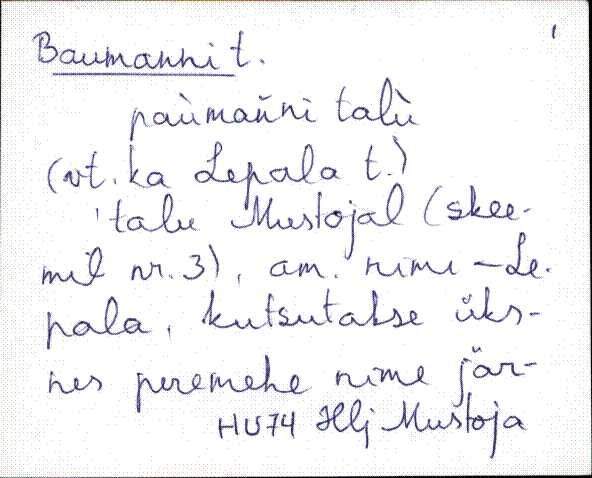 Baumanni t.
paùman̆ni talù
(vt. ka Lepala t.)
'talu Mustojal (skee-
mil nr. 3), am. nimi – Le-
pala, kutsutakse üks-
nes peremehe nime jär-
HU74 Hlj Mustoja